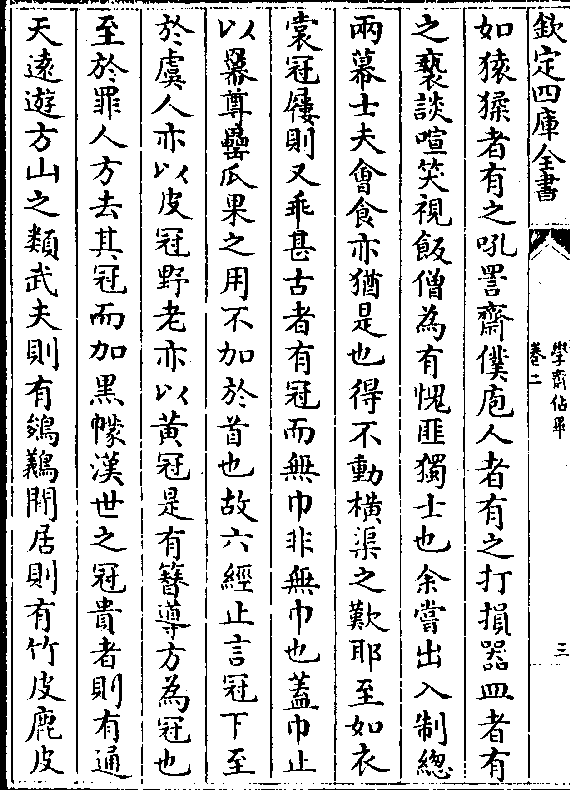 欽定四庫全書
學齋佔畢
卷二
三
如猿猱者有之吼詈齋僕庖人者有之打損器皿者有
之褻談喧笑視飯僧為有愧匪獨士也余嘗出入制總
兩幕士夫會食亦猶是也得不動橫渠之歎耶至如衣
裳冠屨則又乖甚古者有冠而無巾非無巾也蓋巾止
以羃尊罍瓜果之用不加於首也故六經止言冠下至
於虞人亦以皮冠野老亦以黃冠是有簪導方為冠也
至於罪人方去其冠而加黑幪漢世之冠貴者則有通
天逺遊方山之類武夫則有鷂鶡閒居則有竹皮鹿皮